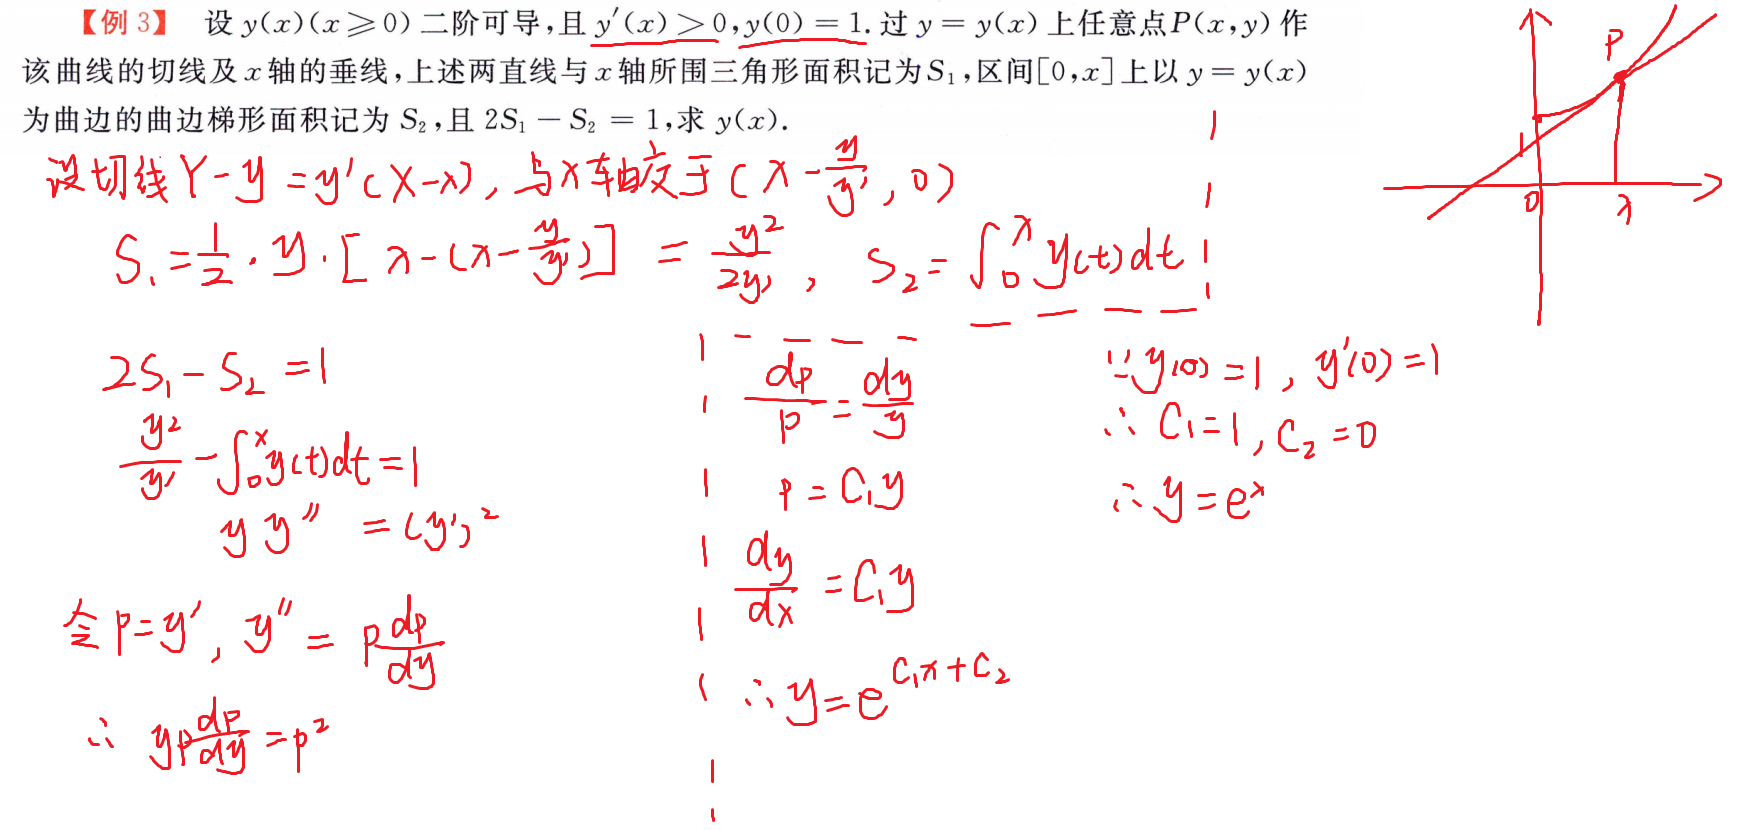 【例3】 设 y(x)(x⩾0) 二阶可导,且 y′(x)>0,y(0)=1. 过 y=y(x) 上任意点P(x,y) 作
该曲线的切线及 x 轴的垂线,上述两直线与 x 轴所围三角形面积记为 S₁,区间[0,x]上以 y=y(x)
为曲边的曲边梯形面积记为 S₂,且 2S₁−S₂=1,求 y(x).
设切线 Y-y=y'(X-x), 与x轴交于(x-y/y', 0)
S₁=1/2·y·[x-(x-y/y')] = y²/2y', S₂=∫₀ˣy(t)dt
2S₁-S₂=1
y²/y'-∫₀ˣy(t)dt=1
yy''=(y')²
令p=y', y''=p dp/dy
∴ yp dp/dy=p²
dp/p=dy/y
p=C₁y
dy/dx=C₁y
∴y=e^(C₁x+C₂)
∵y(0)=1, y'(0)=1
∴C₁=1, C₂=0
∴y=eˣ
P
1
0
x